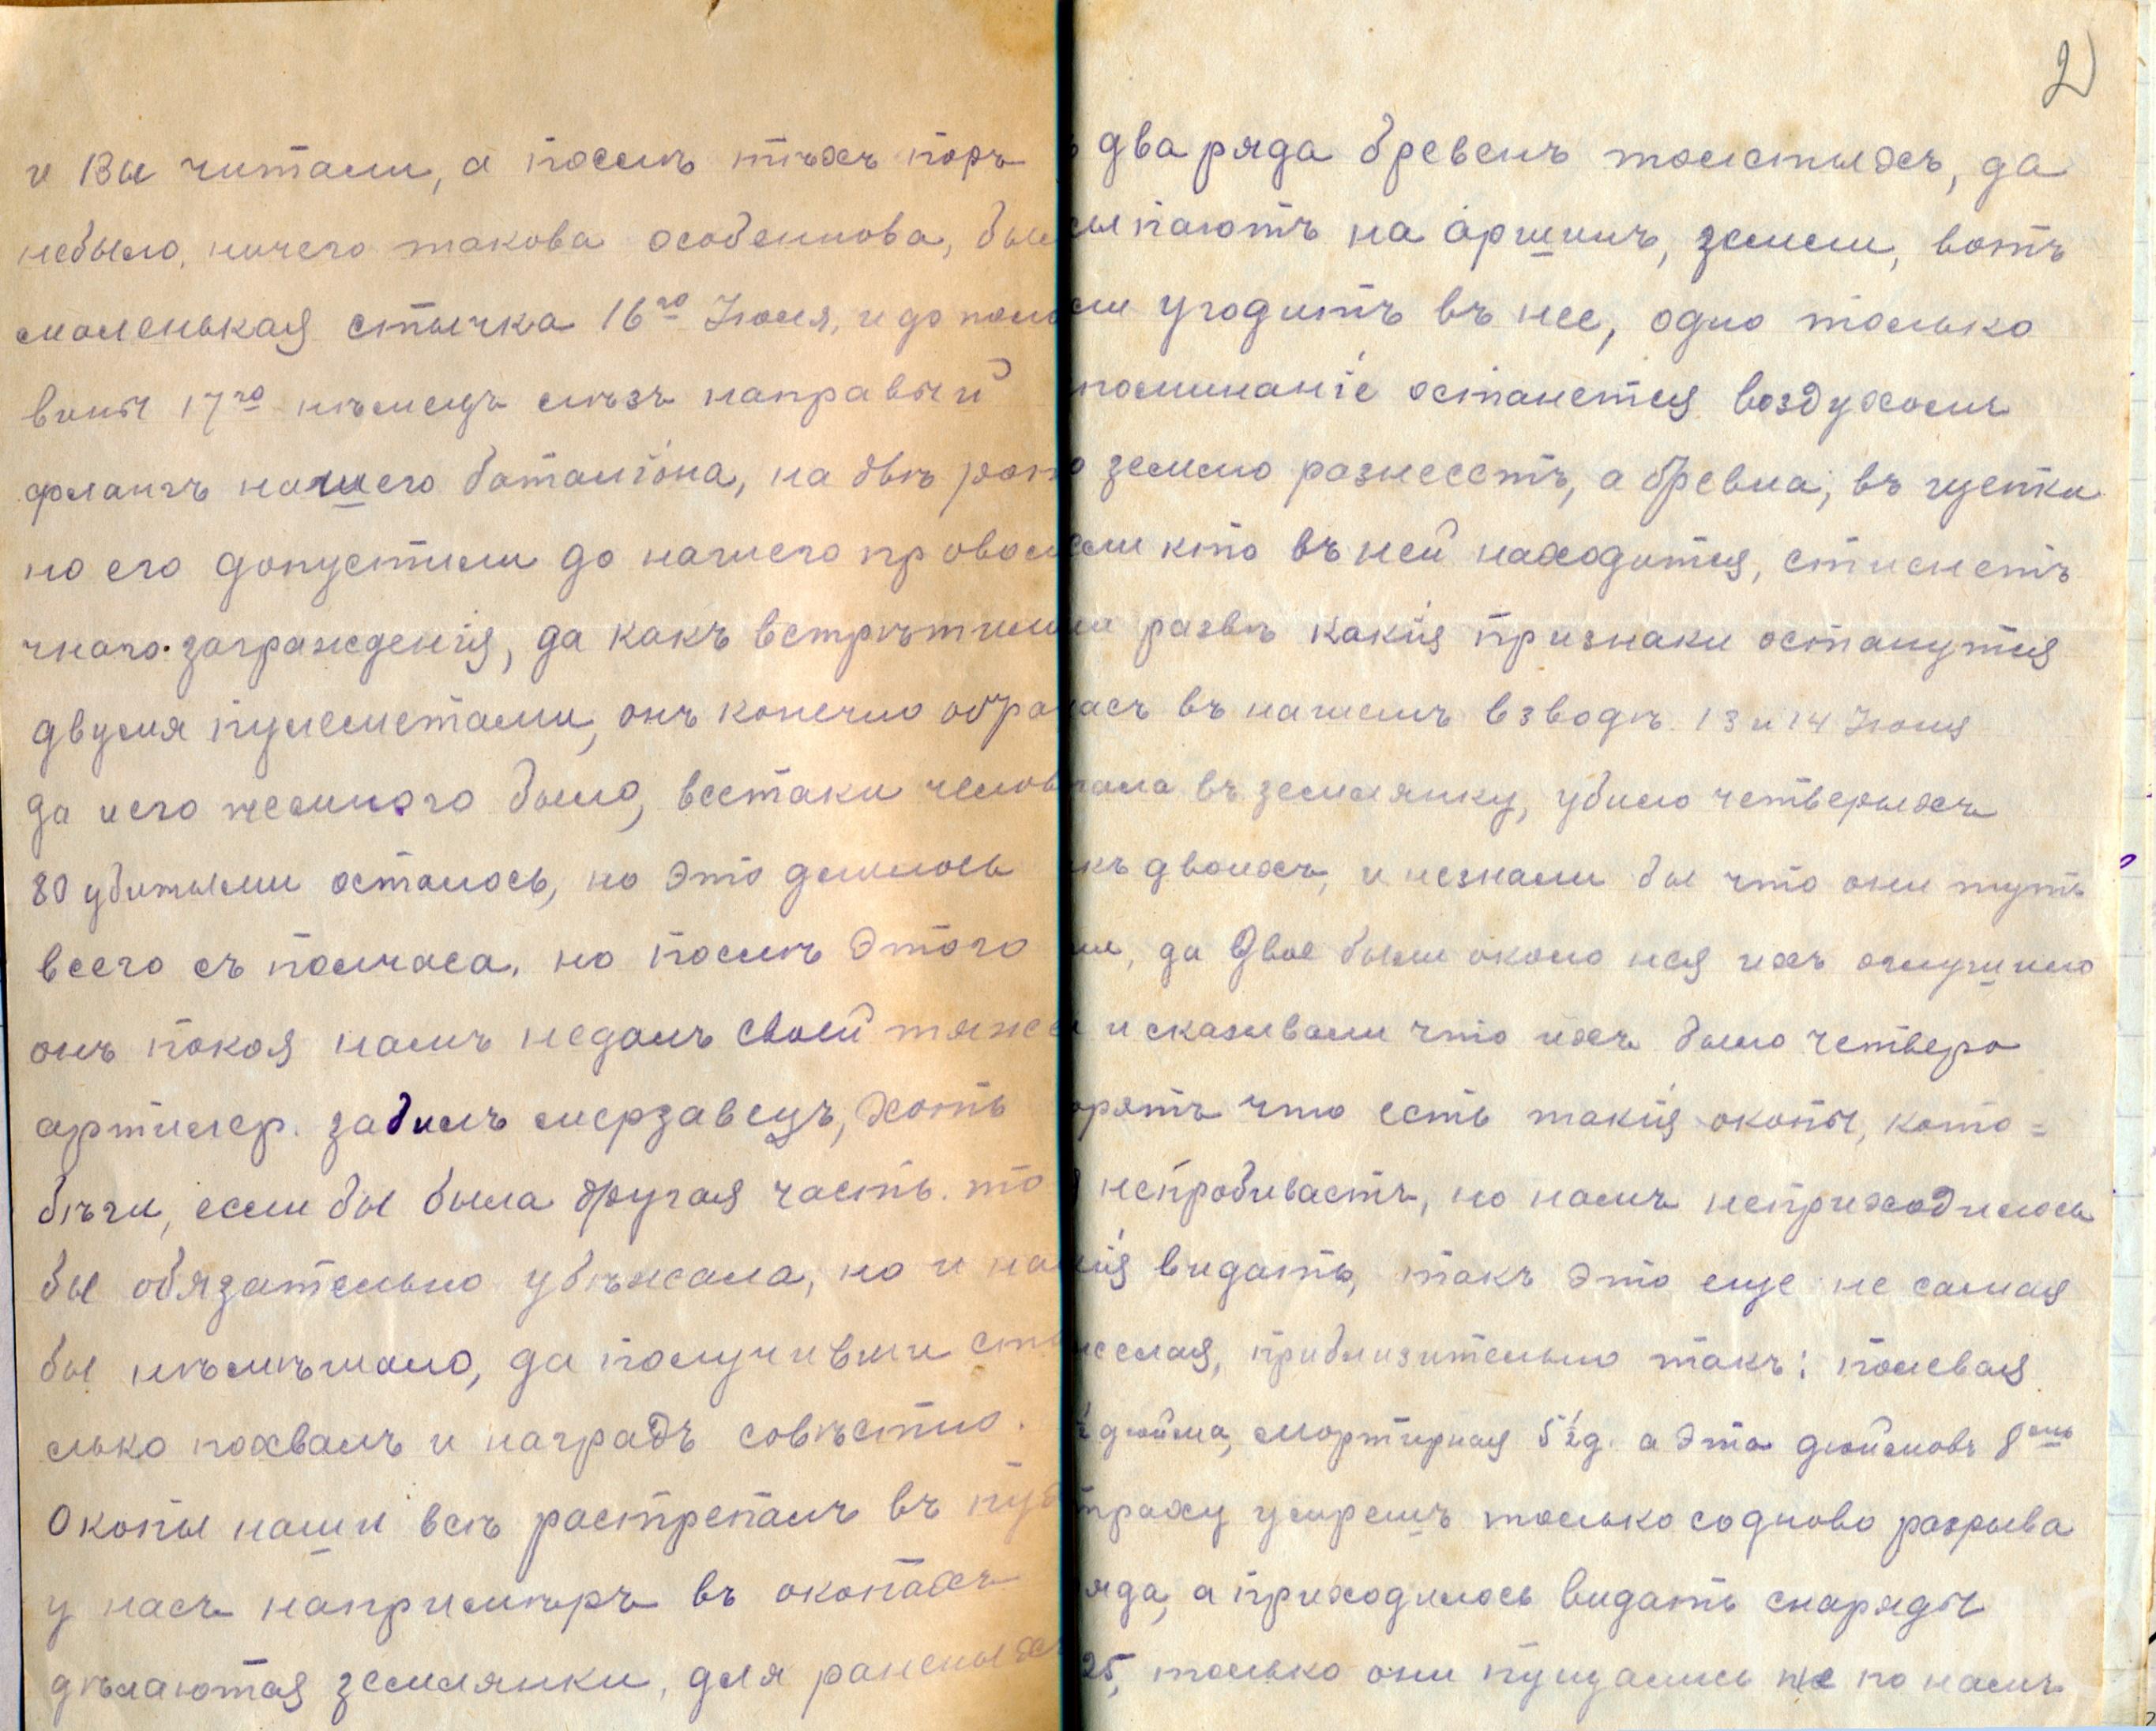 и Вы читали, а послѣ тѣхъ поръ
небыло, ничего такова особеннова, был
маленькая стычка 16го Іюля, и до поло
вины 17го нѣмецъ лѣзъ направый
флангъ нашего баталіона, на двѣ рот
но его допустили до нашего провол
чнаго заграждения, да какъ встрѣтили
двумя пулеметами, онъ конечно обра
да и его немного было, всетаки челов
80 убитыми осталось, но это длилось
всего съ полчаса, но послѣ этого
онъ покоя намъ недалъ своей тяже
артилер. забилъ мерзавецъ, хоть
бѣги, если бы была другая часть. то
бы обязательно убѣжала, но и на
бы нѣмѣшало, да получивши сто
лько похвалъ и наградъ совѣстно.
Окопы наши всѣ растрепалъ въ пух
у насъ напримѣръ въ окопахъ
дѣлаются землянки, для раненыхъ
2)
два ряда бревенъ толстыхъ, да
сыпаютъ на аршинъ, земли, вотъ
сли угодитъ въ нее, одно только
поминаніе останется воздухомъ
землю разнесетъ, а бревна, въ щепки
сли кто въ ней находится, стиснетъ
ли развѣ какія признаки останутся
насъ въ нашемъ взводѣ 13 и 14 Іюля
пала въ землянку, убило четверыхъ
къ двоихъ, и незнали бы что они тутъ
ли, да двое были около нея ихъ оглушило
и сказывали что ихъ было четверо
орятъ что есть такія окопы, кото=
непробиваетъ, но намъ неприходилось
кія видать, такъ это еще не самая
желая, приблизительно такъ: полевая
½ дюйма, мортирная 5½ д. а эта дюймовъ 8мь
траху умрешъ только содново разрыва
яда, а приходилось видать снаряды
25, только они пущались не по намъ